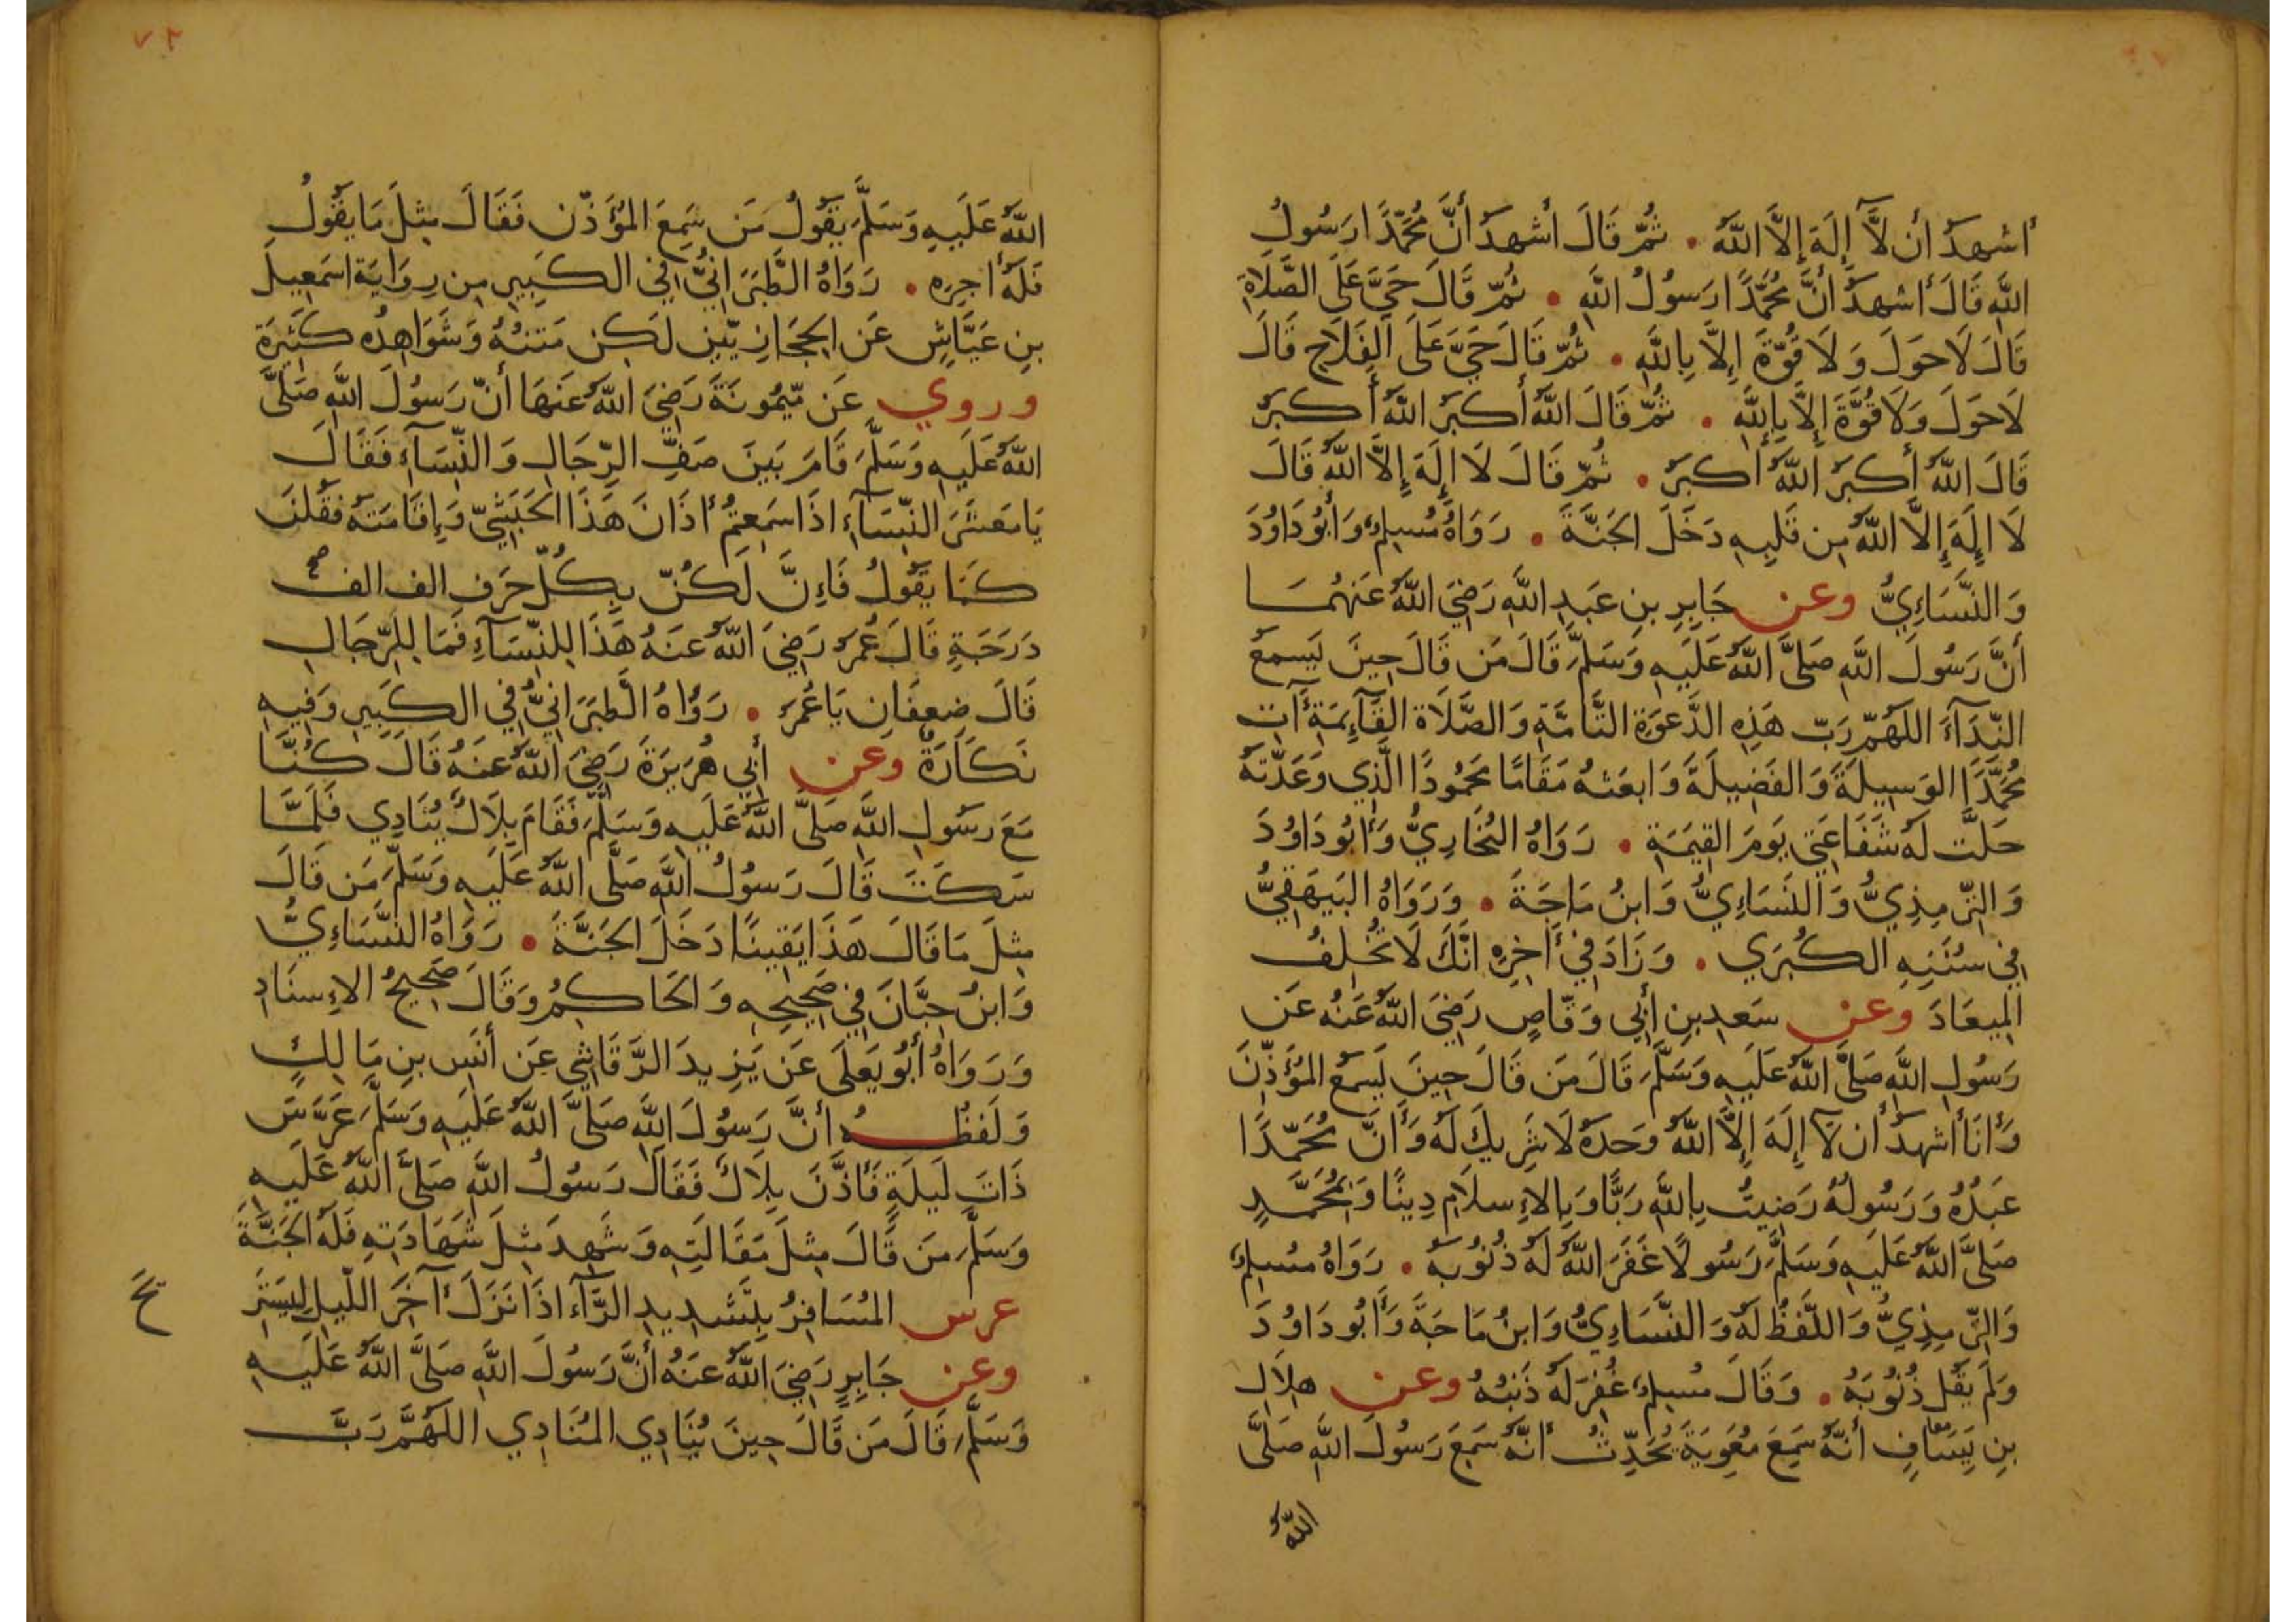 أشهدُ أن لَّآ إِلَهَ إِلَّا اللَّهُ . ثُمَّ قَالَ أشهدُ أنَّ مُحَمَّدًا رَسُولُ
اللَّهِ قَالَ أشهدُ أنَّ مُحَمَّدًا رَسُولُ اللَّهِ . ثُمَّ قَالَ حَيَّ عَلَى الصَّلَاةِ
قَالَ لَا حَولَ وَلَا قُوَّةَ إِلَّا بِاللَّهِ . ثُمَّ قَالَ حَيَّ عَلَى الفَلَاحِ قَالَ
لَا حَولَ وَلَا قُوَّةَ إِلَّا بِاللَّهِ . ثُمَّ قَالَ اللَّهُ أَكبَرُ اللَّهُ أَكبَرُ
قَالَ اللَّهُ أَكبَرُ اللَّهُ أَكبَرُ . ثُمَّ قَالَ لَا إِلَهَ إِلَّا اللَّهُ قَالَ
لَا إِلَهَ إِلَّا اللَّهُ مِن قَلبِهِ دَخَلَ الجَنَّةَ . رَوَاهُ مُسلِمٌ وَأَبُو دَاوُدَ
وَالنَّسَائِيُّ وعن جَابِرِ بنِ عَبدِ اللَّهِ رَضِيَ اللَّهُ عَنهُمَا
أَنَّ رَسُولَ اللَّهِ صَلَّى اللَّهُ عَلَيهِ وَسَلَّمَ قَالَ مَن قَالَ حِينَ يَسمَعُ
النِّدَآءَ اللَّهُمَّ رَبَّ هَذِهِ الدَّعوَةِ التَّامَّةِ وَالصَّلَاةِ القَآئِمَةِ آتِ
مُحَمَّدًا الوَسِيلَةَ وَالفَضِيلَةَ وَابعَثهُ مَقَامًا مَحمُودًا الَّذِي وَعَدتَّهُ
حَلَّت لَهُ شَفَاعَتِي يَومَ القِيَمَةِ . رَوَاهُ البُخَارِيُّ وَأَبُو دَاوُدَ
وَالتِّرمِذِيُّ وَالنَّسَائِيُّ وَابنُ مَاجَةَ . وَرَوَاهُ البَيهَقِيُّ
فِي سُنَنِهِ الكُبرَي . وَزَادَ فِي آخِرِهِ انَّكَ لَا تُخلِفُ
المِيعَادَ وعن سَعدِ بنِ أَبِي وَقَّاصٍ رَضِيَ اللَّهُ عَنهُ عَن
رَسُولِ اللَّهِ صَلَّى اللَّهُ عَلَيهِ وَسَلَّمَ قَالَ مَن قَالَ حِينَ يَسمَعُ المُؤَذِّنَ
وَأَنَا أَشهدُ أَن لَّآ إِلَهَ إِلَّا اللَّهُ وَحدَهُ لَا شَرِيكَ لَهُ وَأَنَّ مُحَمَّدًا
عَبدُهُ وَرَسُولُهُ رَضِيتُ بِاللَّهِ رَبًّا وَبِالإِسلَامِ دِينًا وَبِمُحَمَّدٍ
صَلَّى اللَّهُ عَلَيهِ وَسَلَّمَ رَسُولًا غَفَرَ اللَّهُ لَهُ ذُنُوبَهُ . رَوَاهُ مُسلِمٌ
وَالتِّرمِذِيُّ وَاللَّفظُ لَهُ وَالنَّسَائِيُّ وَابنُ مَاجَةَ وَأَبُو دَاوُدَ
وَلَم يَقُل ذُنُوبَهُ . وَقَالَ مُسلِمٌ غُفِرَ لَهُ ذَنبُهُ وعن هِلَالِ
بنِ يِسَافٍ أَنَّهُ سَمِعَ مُعَوِيَةَ يُحَدِّثُ أَنَّهُ سَمِعَ رَسُولَ اللَّهِ صَلَّى
اللَّهُ
٧٢
اللَّهُ عَلَيهِ وَسَلَّمَ يَقُولُ مَن سَمِعَ المُؤَذِّن فَقَالَ مِثلَ مَا يَقُولُ
فَلَهُ أَجرِهِ . رَوَاهُ الطَّبَرَانِيُّ فِي الكَبِيرِ مِن رِوَايَةِ اسمَعِيلَ
بنِ عَيَّاشٍ عَنِ الحِجَازِيِّينِ لَكِن مَتنُهُ وَشَوَاهِدُه كَثِيرَة
وروي عَن مَّيمُونَةَ رَضِيَ اللَّهُ عَنهَا أَنَّ رَسُولَ اللَّهِ صَلَّى
اللَّهُ عَلَيهِ وَسَلَّمَ قَامَ بَينَ صَفِّ الرِّجَالِ وَالنِّسَآءِ فَقَالَ
يَا مَعشَرَ النِّسَآءِ اذَا سَمِعتُم أَذَانَ هَذَا الحَبَشِيِّ وَإِقَامَتَهُ فَقُلنَ
كَمَا يَقُولُ فَإِنَّ لَكُنَّ بِكُلِّ حَرفٍ الف الف
دَرَجَةٍ قَالَ عُمَرُ رَضِيَ اللَّهُ عَنهُ هَذَا لِلنِّسَآءِ فَمَا لِلرِّجَالِ
قَالَ ضِعفَانِ يَا عُمَرُ . رَوَاهُ الطَّبَرَانِيُّ فِي الكَبِيرِ وَفِيهِ
نَكَارَةٌ وعن أَبِي هُرَيرَةَ رَضِيَ اللَّهُ عَنهُ قَالَ كُنَّا
مَعَ رَسُولِ اللَّهِ صَلَّى اللَّهُ عَلَيهِ وَسَلَّمَ فَقَامَ بِلَالٌ يُنَادِي فَلَمَّا
سَكَتَ قَالَ رَسُولُ اللَّهِ صَلَّى اللَّهُ عَلَيهِ وَسَلَّمَ مَن قَالَ
مِثلَ مَا قَالَ هَذَا يَقِينًا دَخَلَ الجَنَّةَ . رَوَاهُ النَّسَائِيُّ
وَابنُ حِبَّانَ فِي صَحِيحِهِ وَالحَاكِمُ وَقَالَ صَحِيحُ الإِسنَادِ
وَرَوَاهُ أَبُو يَعلَى عَن يَزِيدَ الرَّقَاشِي عَن أَنَسِ بنِ مَالِكٍ
وَلَفظُهُ أَنَّ رَسُولَ اللَّهِ صَلَّى اللَّهُ عَلَيهِ وَسَلَّمَ عَرَّسَ
ذَاتَ لَيلَةٍ فَأَذَّنَ بِلَالٌ فَقَالَ رَسُولُ اللَّهِ صَلَّى اللَّهُ عَلَيهِ
وَسَلَّمَ مَن قَالَ مِثلَ مَقَالَتِهِ وَشَهِدَ مِثلَ شَهَادَتِهِ فَلَهُ الجَنَّةَ
عرس المُسَافِرُ بِتَشدِيدِ الرَّآء اذَا نَزَلَ آخِرَ اللَّيلِ
وعن جَابِرٍ رَضِيَ اللَّهُ عَنهُ أَنَّ رَسُولَ اللَّهِ صَلَّى اللَّهُ عَلَيهِ
وَسَلَّمَ قَالَ مَن قَالَ حِينَ يُنَادِي المُنَادِي اللَّهُمَّ رَبَّ